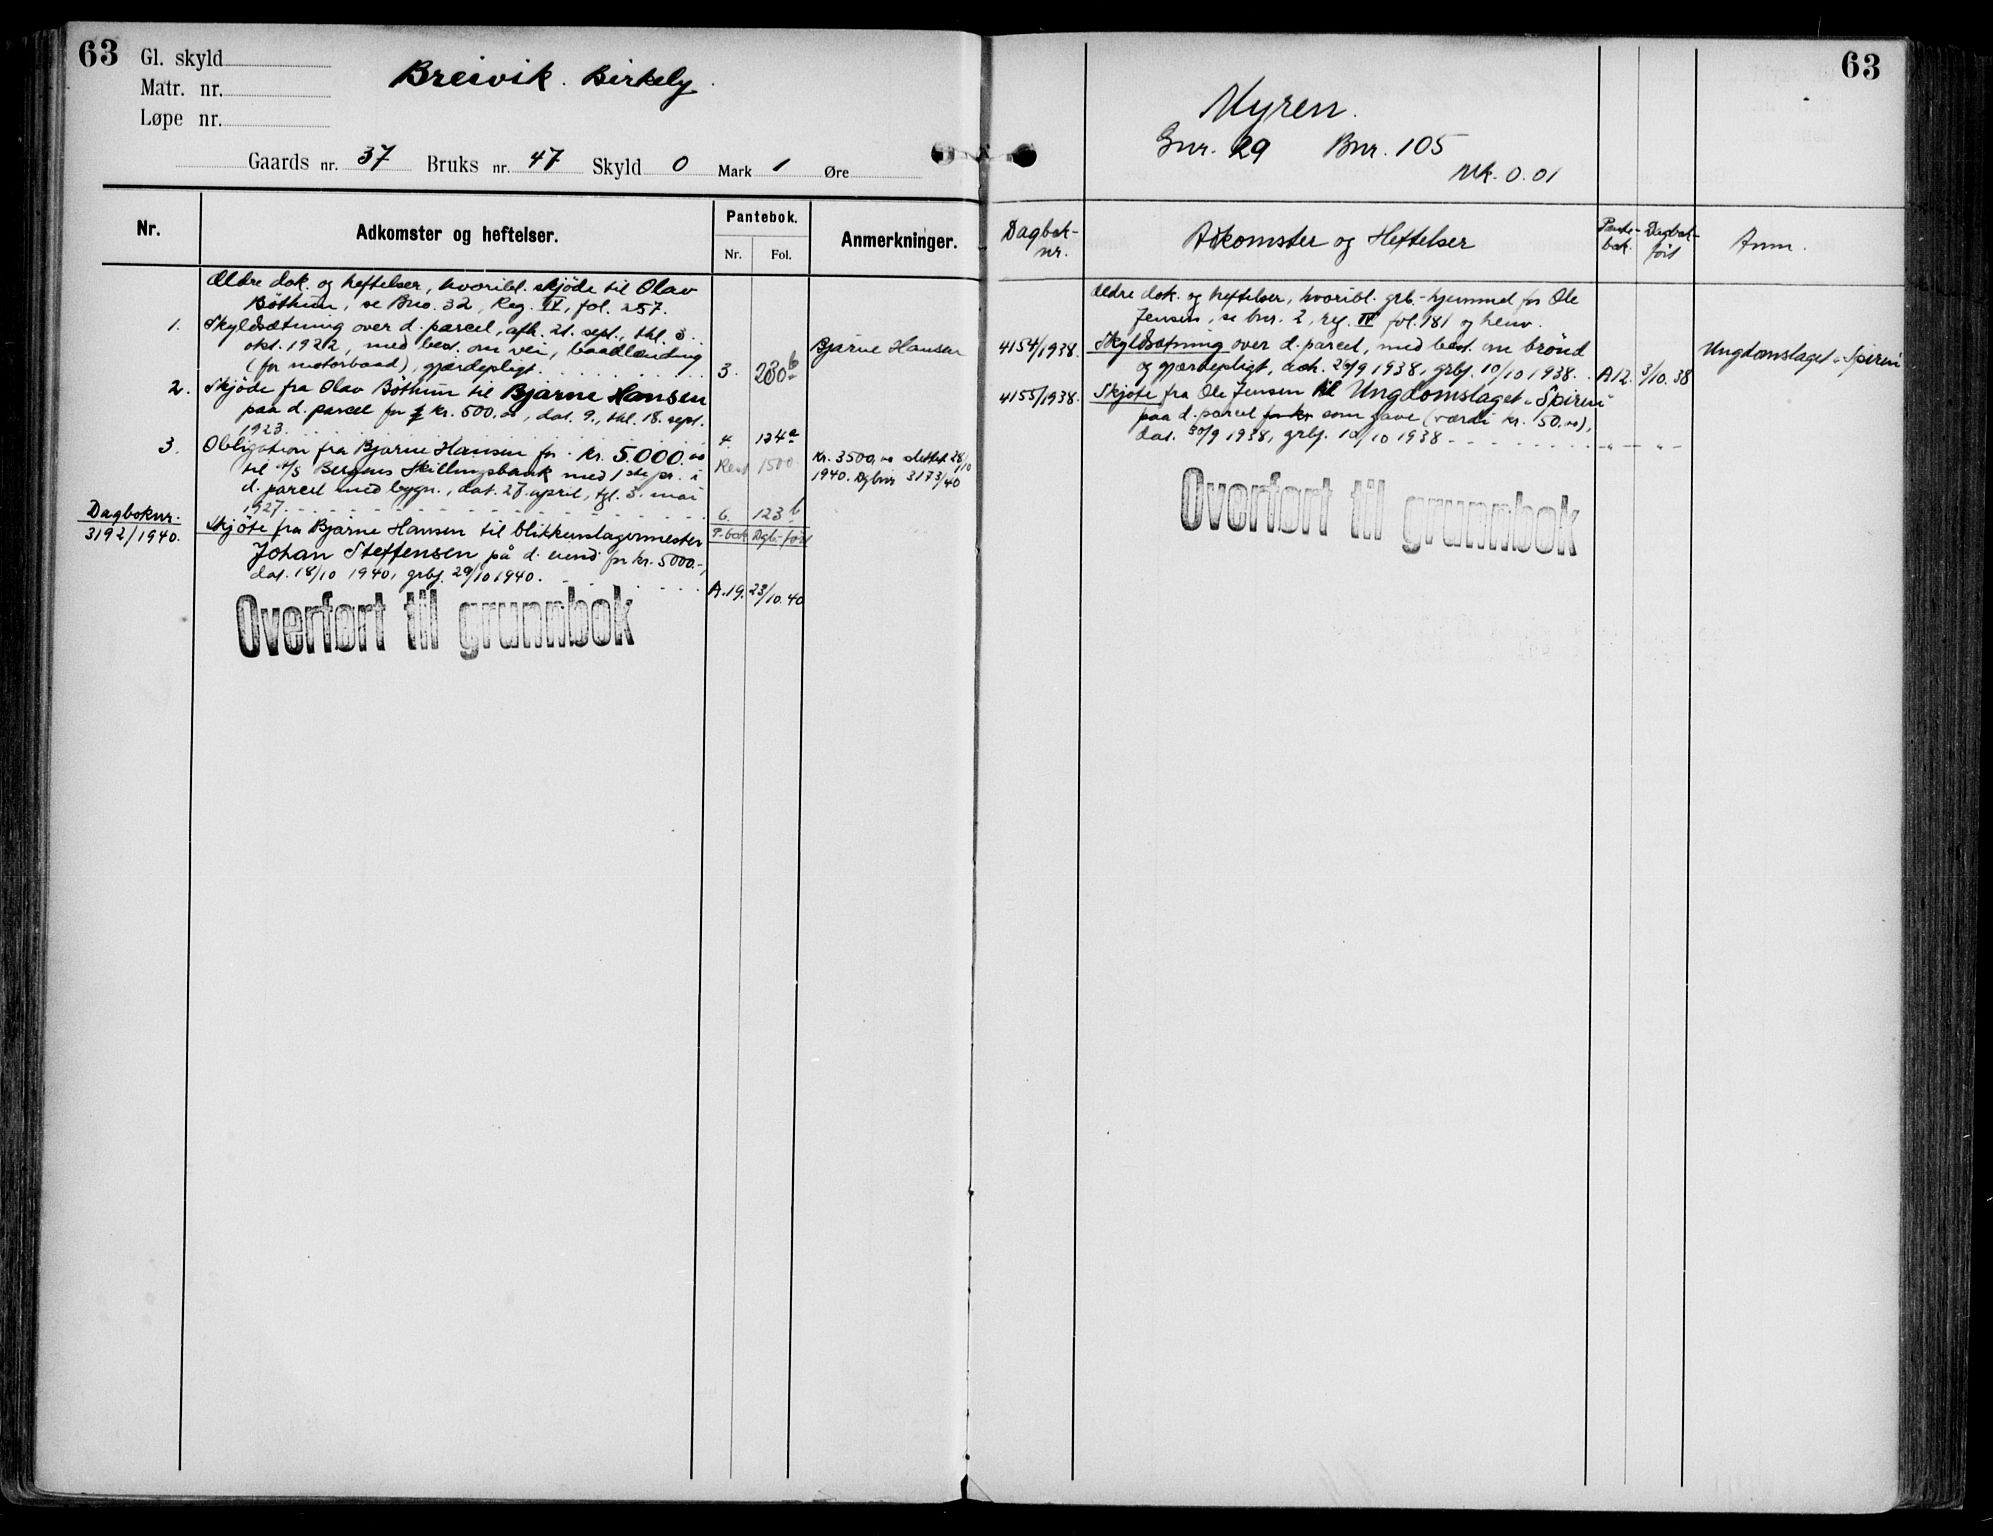 63
Gl. skyld
Matr. nr.
Løpe nr.
Breivik. Birkely.
Gaards nr. 37 Bruks nr. 47 Skyld 0 Mark 1 Øre
Nr.
Adkomster og heftelser.
Pantebok.
Nr. Fol.
Anmerkninger.
Ældre dok. og heftelser, hvoribl. skjöde til Olav
Böthun, se Bno. 32, Reg. IV, fol. 257.
1. Skyldsætning over d. parcel, afh. 21. sept., thl. 3.
okt. 1922, med best. om vei, baadlænding
(for motorbaad), gjærdepligt. 3. 230 b
Bjarne Hansen
2. Skjöde fra Olav Böthun til Bjarne Hansen
paa d. parcel for kr. 500.00, dat. 9., thl. 18. sept.
1923. 4. 124 a
3. Obligation fra Bjarne Hansen for kr. 5.000.00
til A/S Bergens Skillingsbank med 1ste pr. i
d. parcel med bygn., dat. 27. april, tgl. 3. mai
1927. 6. 123 b
Rest 1500.
Kr. 3500,00 slettet 28/10
1940. Dgbnr 3173/40
Dagboknr.
P.bok Dgb-ført
3192/1940. Skjöte fra Bjarne Hansen til blikkenslagermester
Johan Steffensen på d. eiend. for kr. 5000.-,
dat. 18/10 1940, grbf. 29/10 1940. A.19. 23/10.40
Overført til grunnbok
63
Myren.
Gnr. 29 Bnr. 105
Mk. 0.01
Dagbok-
nr.
Adkomster og Heftelser
Pante-
bok.
Dagbok-
ført
Anm.
Ældre dok. og heftelser, hvoribl. grb-hjemmel for Ole
Jensen, se bnr. 2, reg. IV fol. 181 og henv.
4154/1938. Skyldsætning over d. parcel, med best. om brönd
og gjærdepligt, avh. 29/9 1938, grbf. 10/10 1938. A12. 3/10.38
Ungdomslaget "Spiren"
4155/1938. Skjöte fra Ole Jensen til Ungdomslaget "Spiren"
paa d. parcel for kr som gave (værdi kr. 50.00),
dat. 30/9 1938, grbf. 10/10 1938 - " - " -
Overført til grunnbok